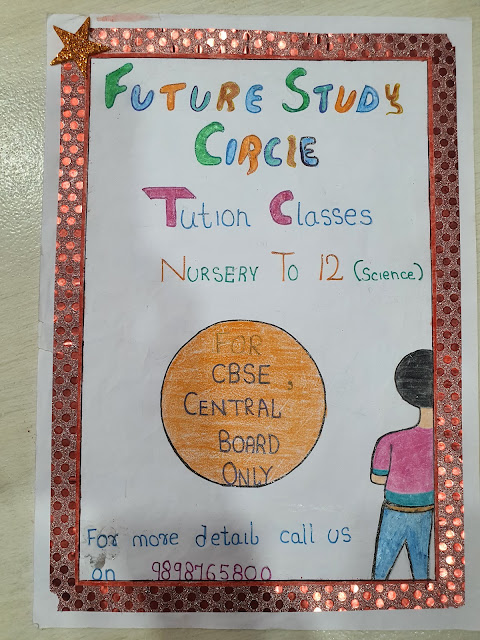 FUTURE STUDY
CIRCLE
Tution Classes
NURSERY TO 12 (Science)
FOR
CBSE,
CENTRAL
BOARD
ONLY
For more detail call us
on 9898765800